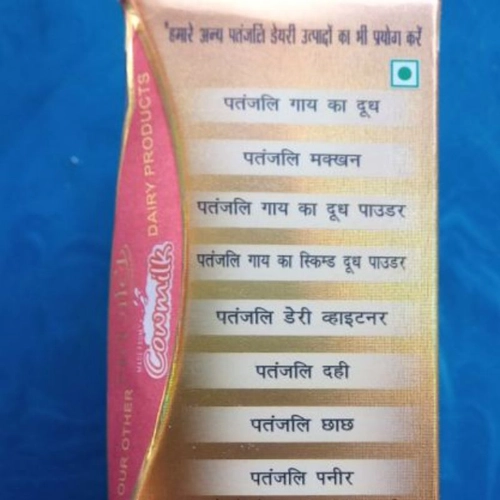 *हमारे अन्य पतंजलि डेयरी उत्पादों का भी प्रयोग करें
पतंजलि गाय का दूध
पतंजलि मक्खन
पतंजलि गाय का दूध पाउडर
पतंजलि गाय का स्किम्ड दूध पाउडर
पतंजलि डेरी व्हाइटनर
पतंजलि दही
पतंजलि छाछ
पतंजलि पनीर
OUR OTHER
Cowmilk
DAIRY PRODUCTS